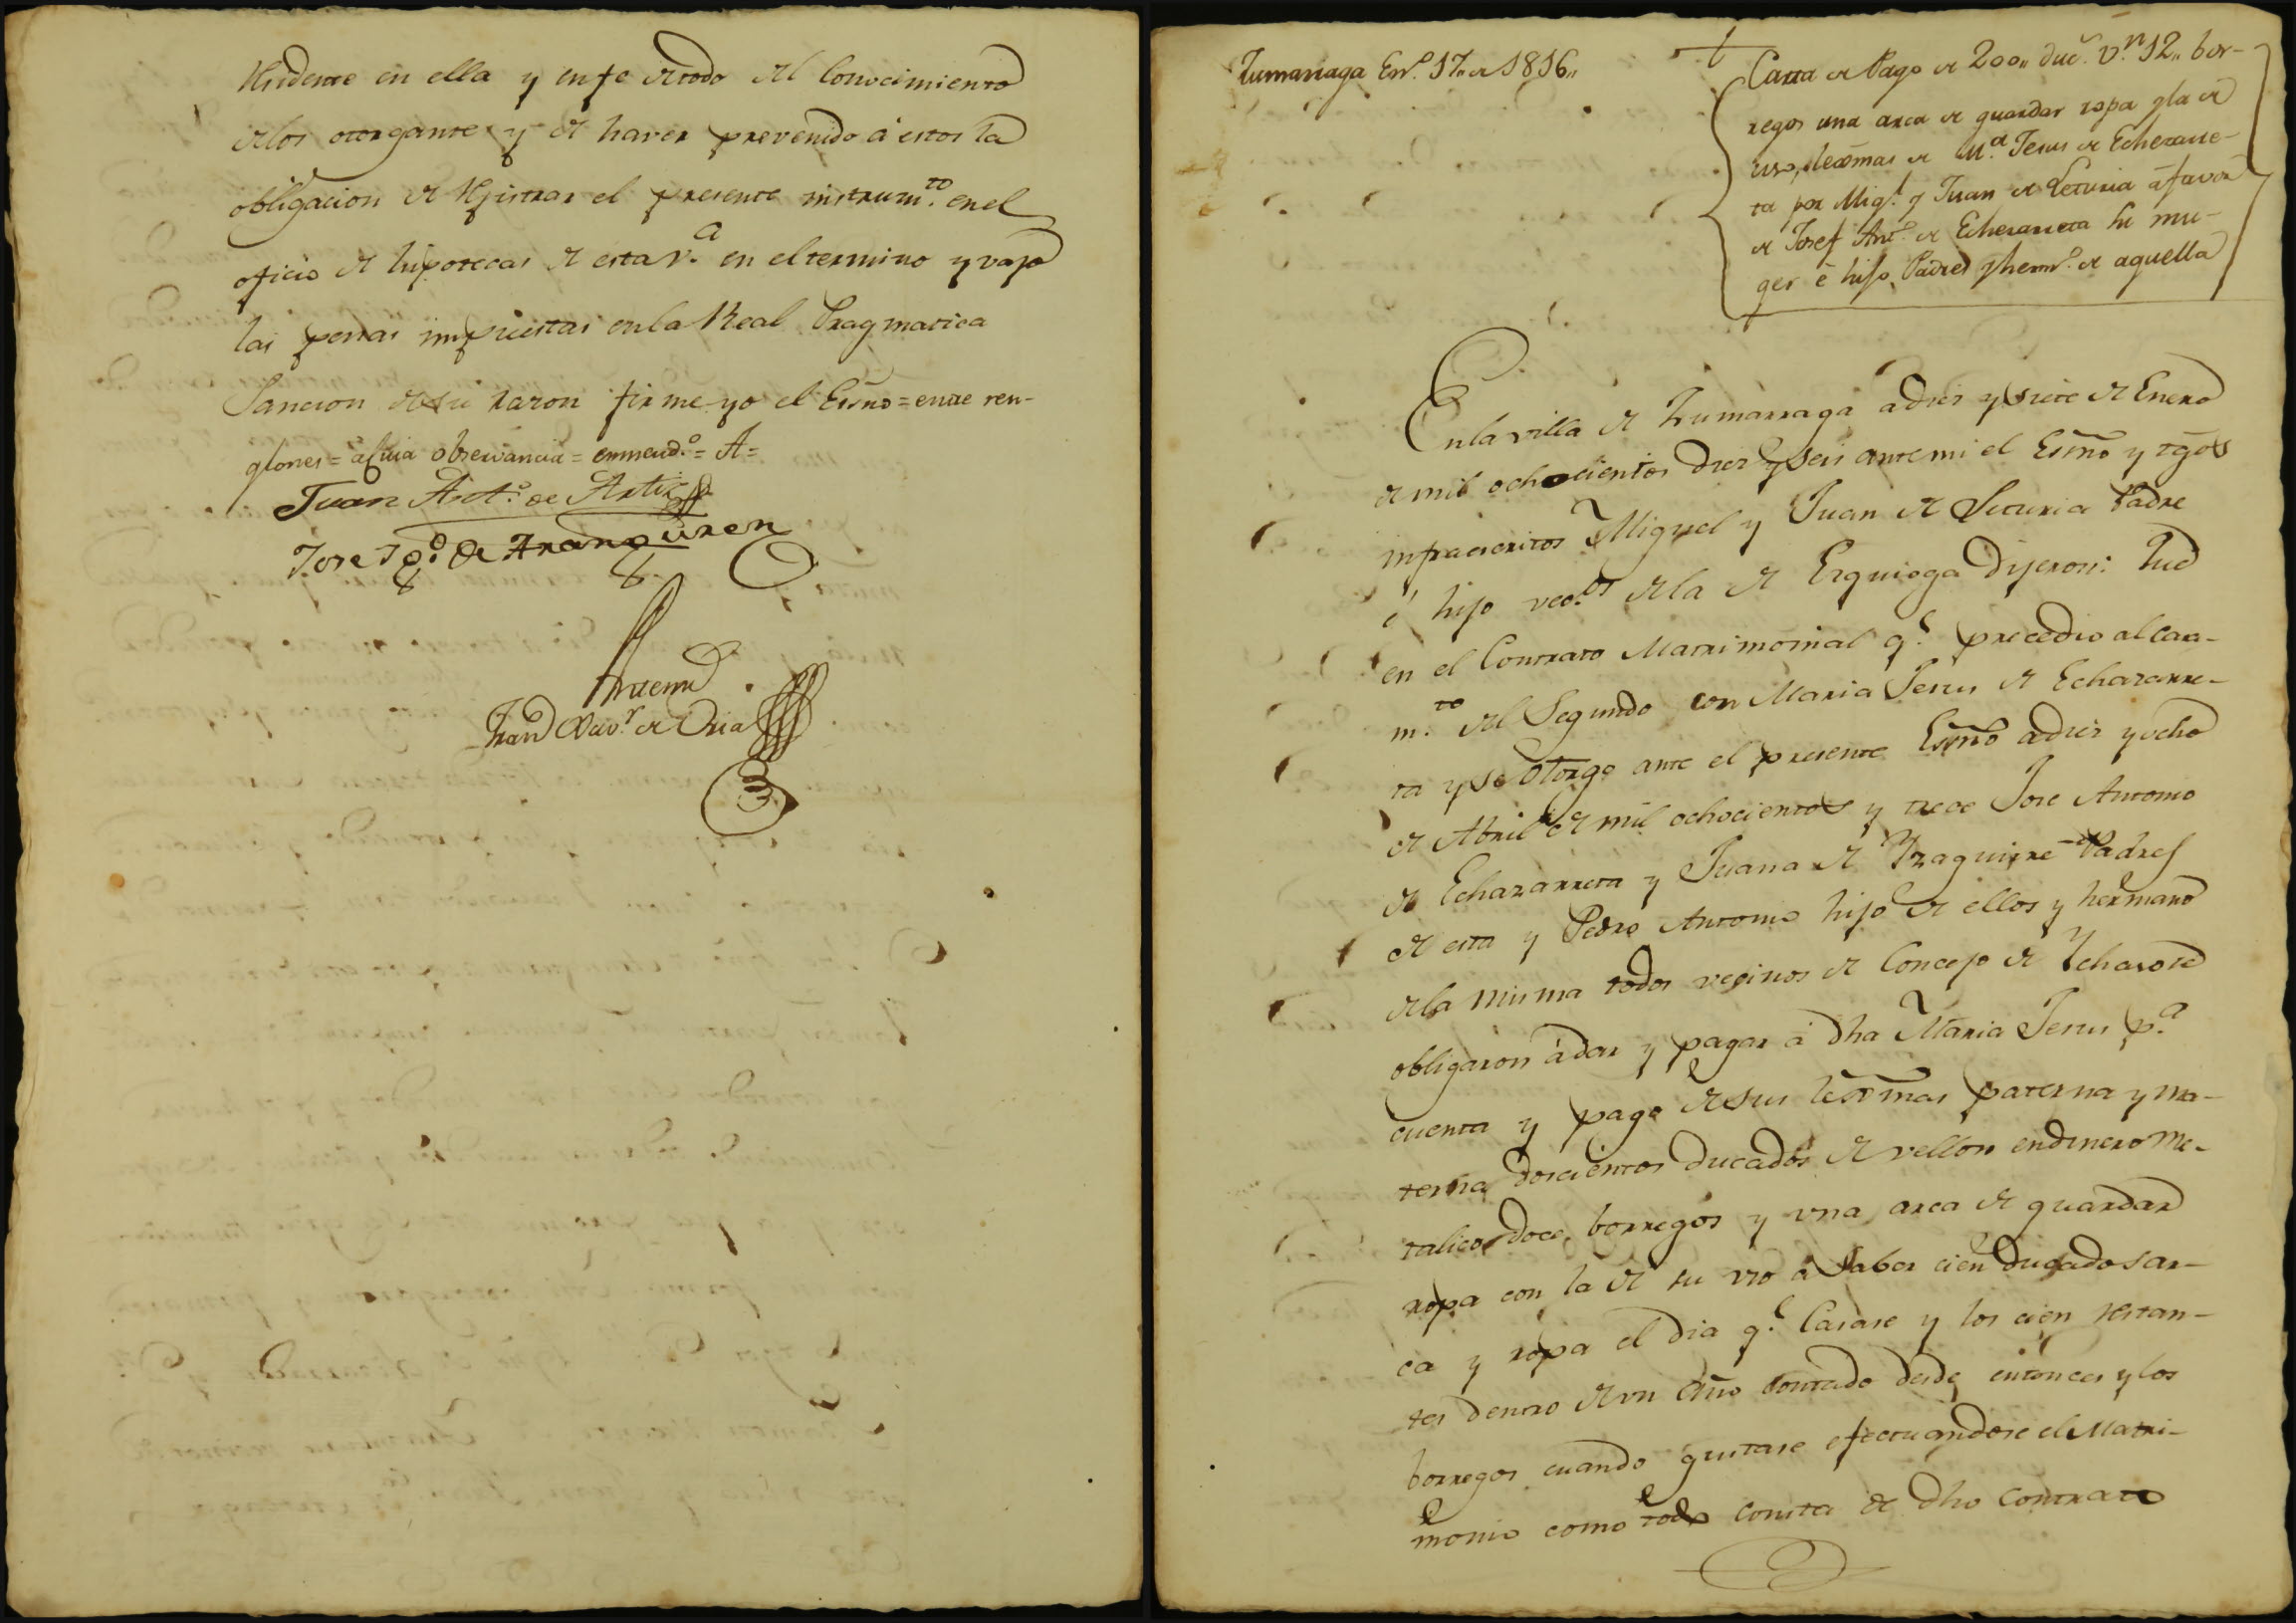 Residente en ella y en fe de todo del Conocimiento
de los otorgantes y de haver prevenido á estos la
obligacion de Registrar el presente instrum.to en el
oficio de hipotecas de esta v.a en el termino y vajo
las penas impuestas en la Real Pragmatica
Sancion de su razon firme yo el Esno = entre ren-
glones = a cuia observancia = enmend.o = A =
Juan Ant.o de
Jose Ig.o de Aranguren
Antemi
Fran.co Xav.r de Oria
Zumarraga En.o 17,, de 1816,,
Carta de Pago de 200,, duc.s v.n 12,, bor-
regos una arca de guardar ropa y la de
uso, lexmas de M.a Jesus de Echezarre-
ta por Mig.l y Juan de Leturia á favor
de Josef Ant.o de Echezarreta su mu-
ger é hijo, Padres y herm.o de aquella
En la villa de Zumarraga a diez y siete de Enero
de mil ochocientos diez y seis ante mi el Esno y tgos
infraescritos Miguel y Juan de Leturia Padre
é hijo vec.os de la de Ezquioga Dijeron: Que
en el Contrato Matrimonial q.e precedio al Casa-
m.to del Segundo con Maria Jesus de Echazarre-
ta y se otorgo ante el presente Esno a diez y ocho
de Abril de mil ochocientos y trece Jose Antonio
de Echazarreta y Juana de Yzaguirre Padres
de esta y Pedro Antonio hijo de ellos y hermano
de la misma todos vecinos de Concejo de Ychaso se
obligaron á dar y pagar á dha Maria Jesus p.a
cuenta y pago de sus lexmas paterna y ma-
terna doscientos ducados de vellon en dinero me-
talico, doce borregos y una arca de guardar
ropa con la de su uso á saber cien ducados ar-
ca y ropa el dia q.e Casase y los cien restan-
tes dentro de un año contado desde entonces y los
borregos cuando gustase efectuandose el Matri-
monio como todo consta de dho contrato